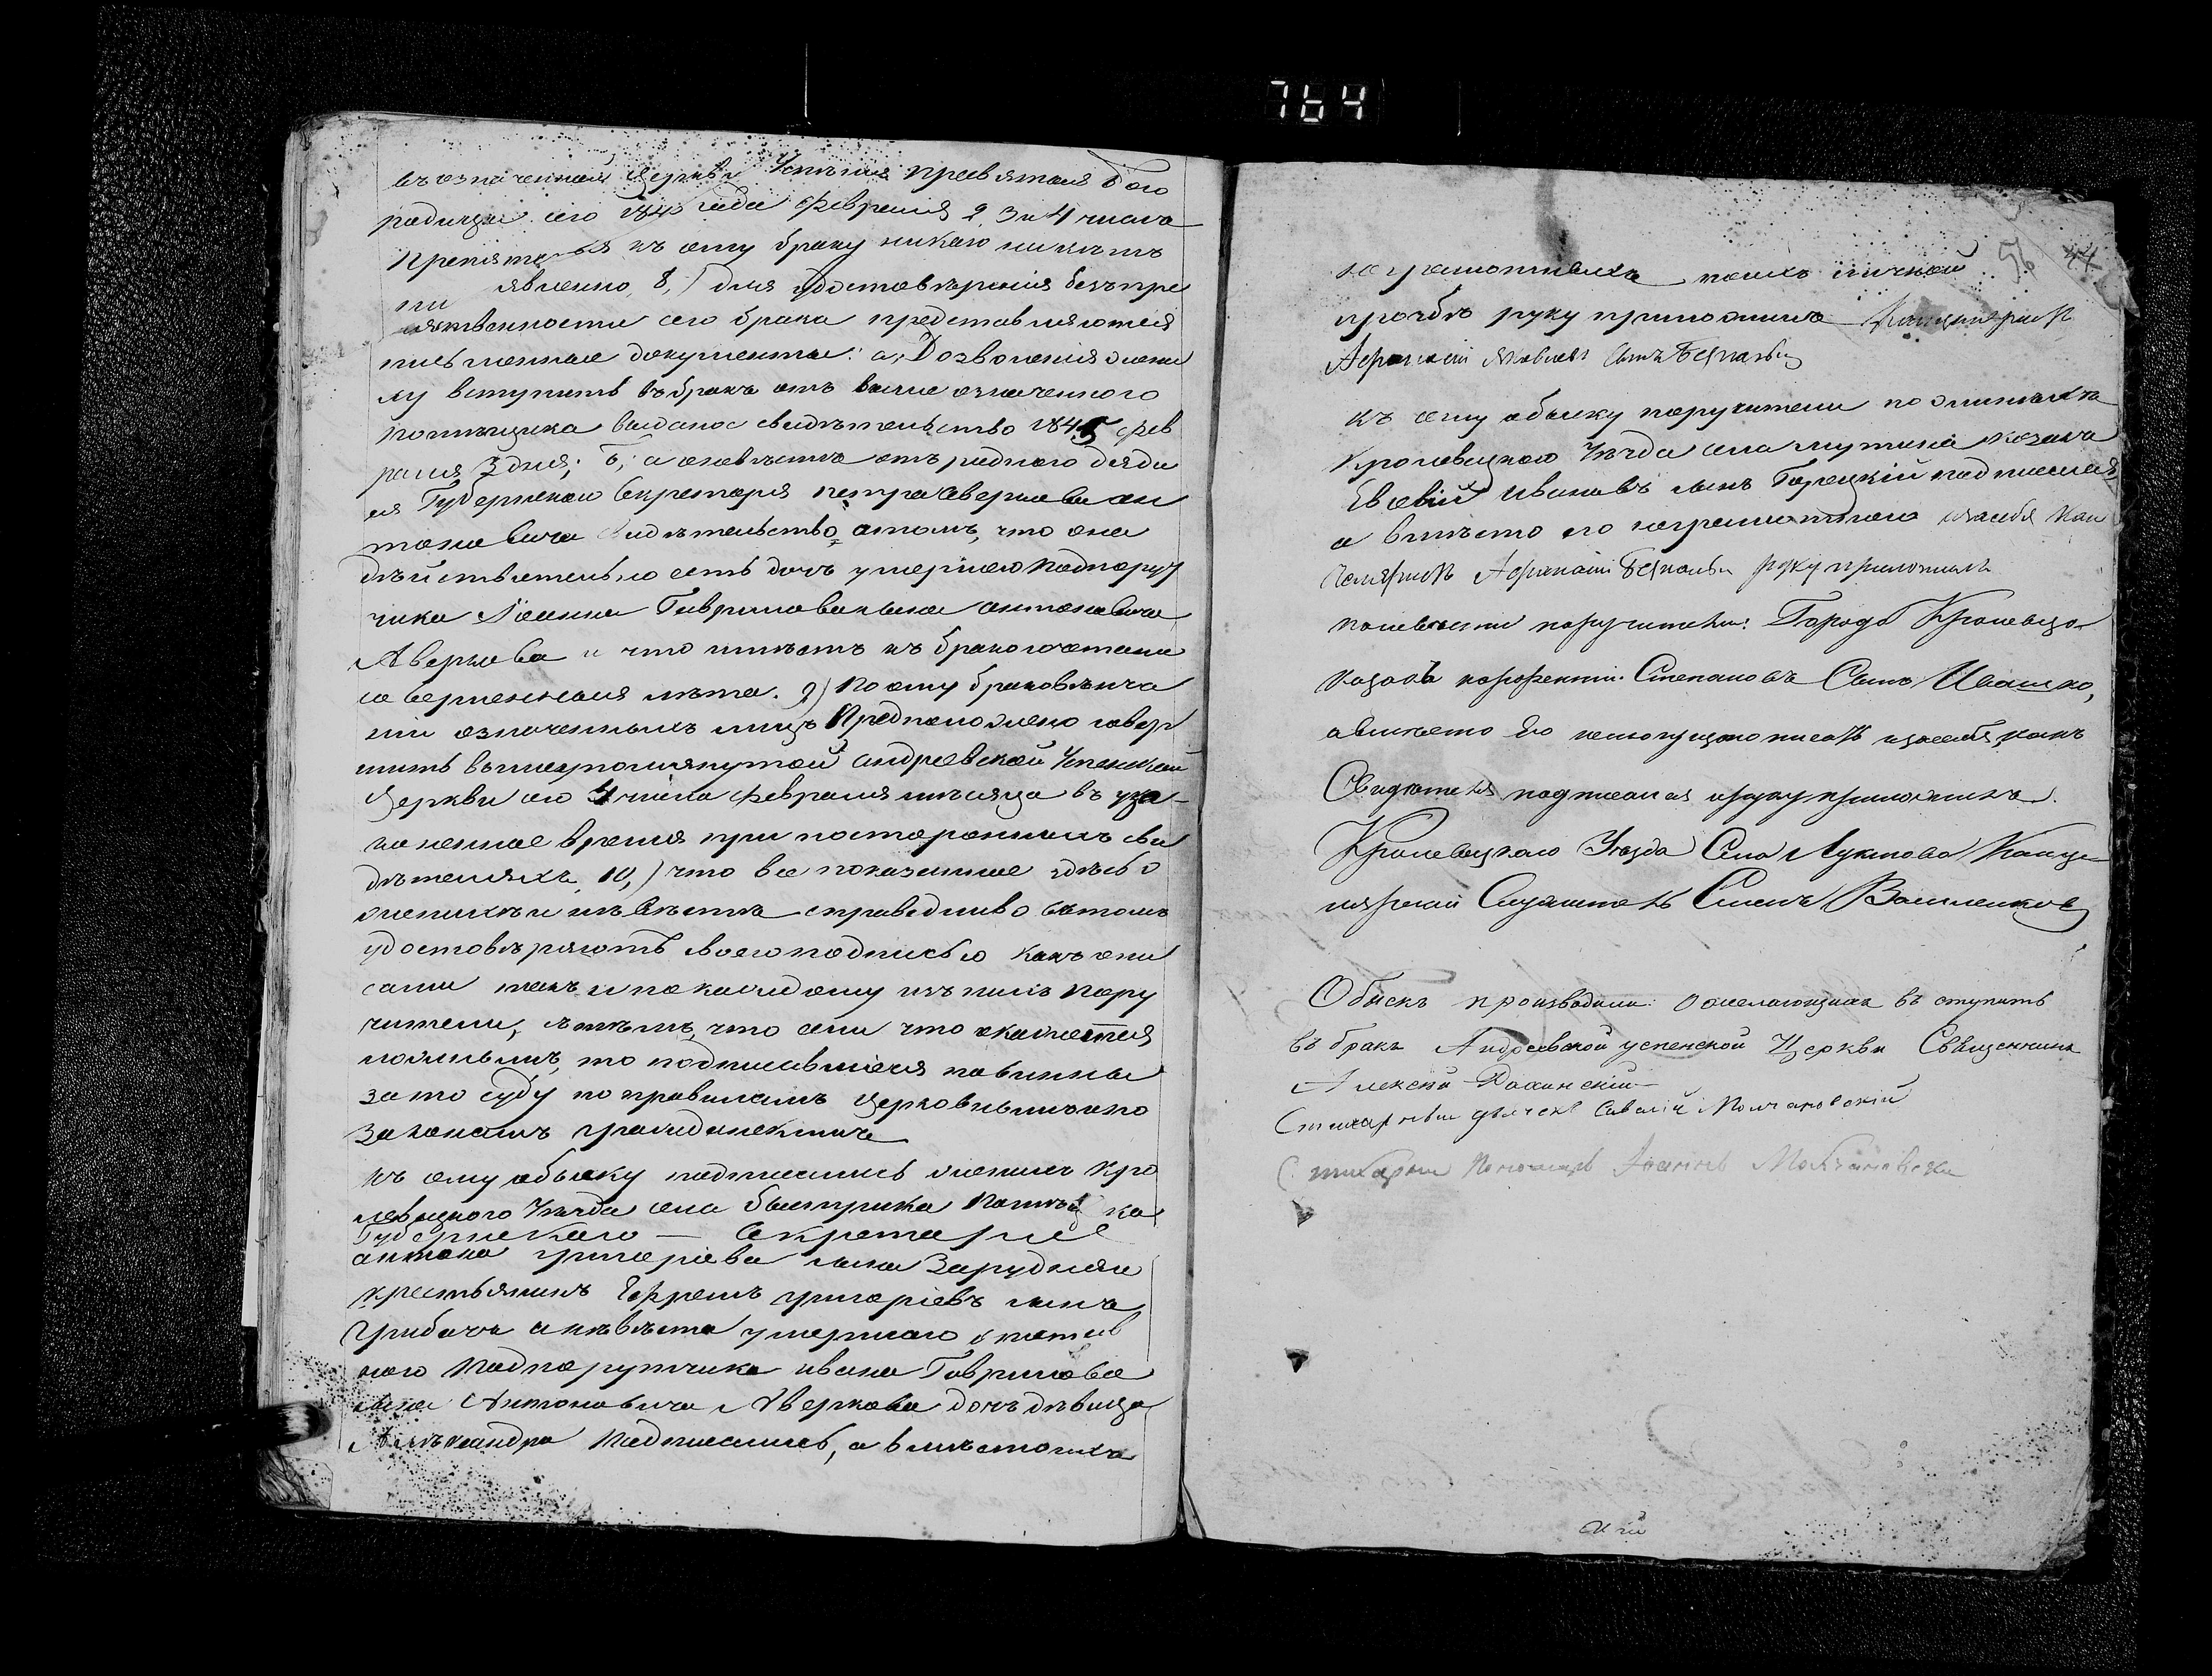 764
въ означенной Церкви Успенія пресвятыя Бого
родицы сего 184 года февраля 2 3 и 4 числа
Препятствія къ сему браку никого никемъ
явленно, 8,) для удостовѣренія безъпре
пятственности сего брака представляются
письменные документы: а, Дозволенія жени
ху вступить въ бракъ отъ выше означенного
помѣщика выданое свидѣтельство 1845 фев
раля 3 дня; б, а оневѣстѣ отъ родного дяди
ея Губернскаго Секретаря петра Аверкова ан
тоновича свидѣтельство отомъ, что она
дѣйствительно есть дочь умершего Подпорут
чика Іоанна Гаврилова сына антоновича
Аверкова и что имѣетъ къ бракосочетани
ю верженныя лѣта. 9) По сему браковѣнча
ніи означенныхъ лицъ Предположено совер
шить вышеупомянутой андреевской Успенской
Церкви сего 4 числа февраля мѣсяца въ уза-
коненное время при постороннихъ сви
дѣтеляхъ, 10,) что все показанное здѣсь о
женихѣ и невѣстѣ справедливо въ томъ
удостовѣряютъ своею подписью какъ они
сами такъ и по каждому изъ нихъ пору
чители, съ тѣмъ, что если что окажется
ложнымъ, то подписавшіеся повинны
зато суду по правиламъ Церковнымъ и по
законамъ гражданскимъ
къ сему обыску подписались женихъ Кро
левецкого Уѣзда села быстрика Помѣщ ка
Губернскаго — Секретаря
антона григоріева сына Зарудняго
крестьянинъ Ефремъ григоріевъ сынъ
Грибачъ а невѣста умершаго
ного Подпорутчика ивана Гаврилова
сына Антоновича Аверкова дочъ дѣвица
Алѣксандра Подписались, а вмѣсто ихъ
56 44
неграмотныхъ поихъ личной
прозбѣ руку приложилъ Канцеляристъ
Афанасій Яковлевъ сынъ
къ сему обыску поручители по женихѣ
Кролевецкого Уѣзда села мутина козакъ
Евсевій Ивановъ сынъ Горецкій подписался
а вмѣсто его неграмотного изасебя Кан
целяристъ Афанасій руку приложилъ
поневѣсти поручители: Города Кролевца
Козакъ Степановъ Сынъ Ивашко,
авмѣсто Его немогущого писать изасебя, какъ
Свидѣтель подписался ируку приложилъ.
Кролевецкого Уѣзда Села Лукнова Канце-
лярскій Служитель Василенковъ
Обыскъ производили: о желающихъ въ ступить
въ бракъ Андреевской успенской Церкви Священникъ
Алексѣй
Стихарный дьячекъ Савелій Молчановскій
Стихарный Пономарь Іоаннъ Молчановскій